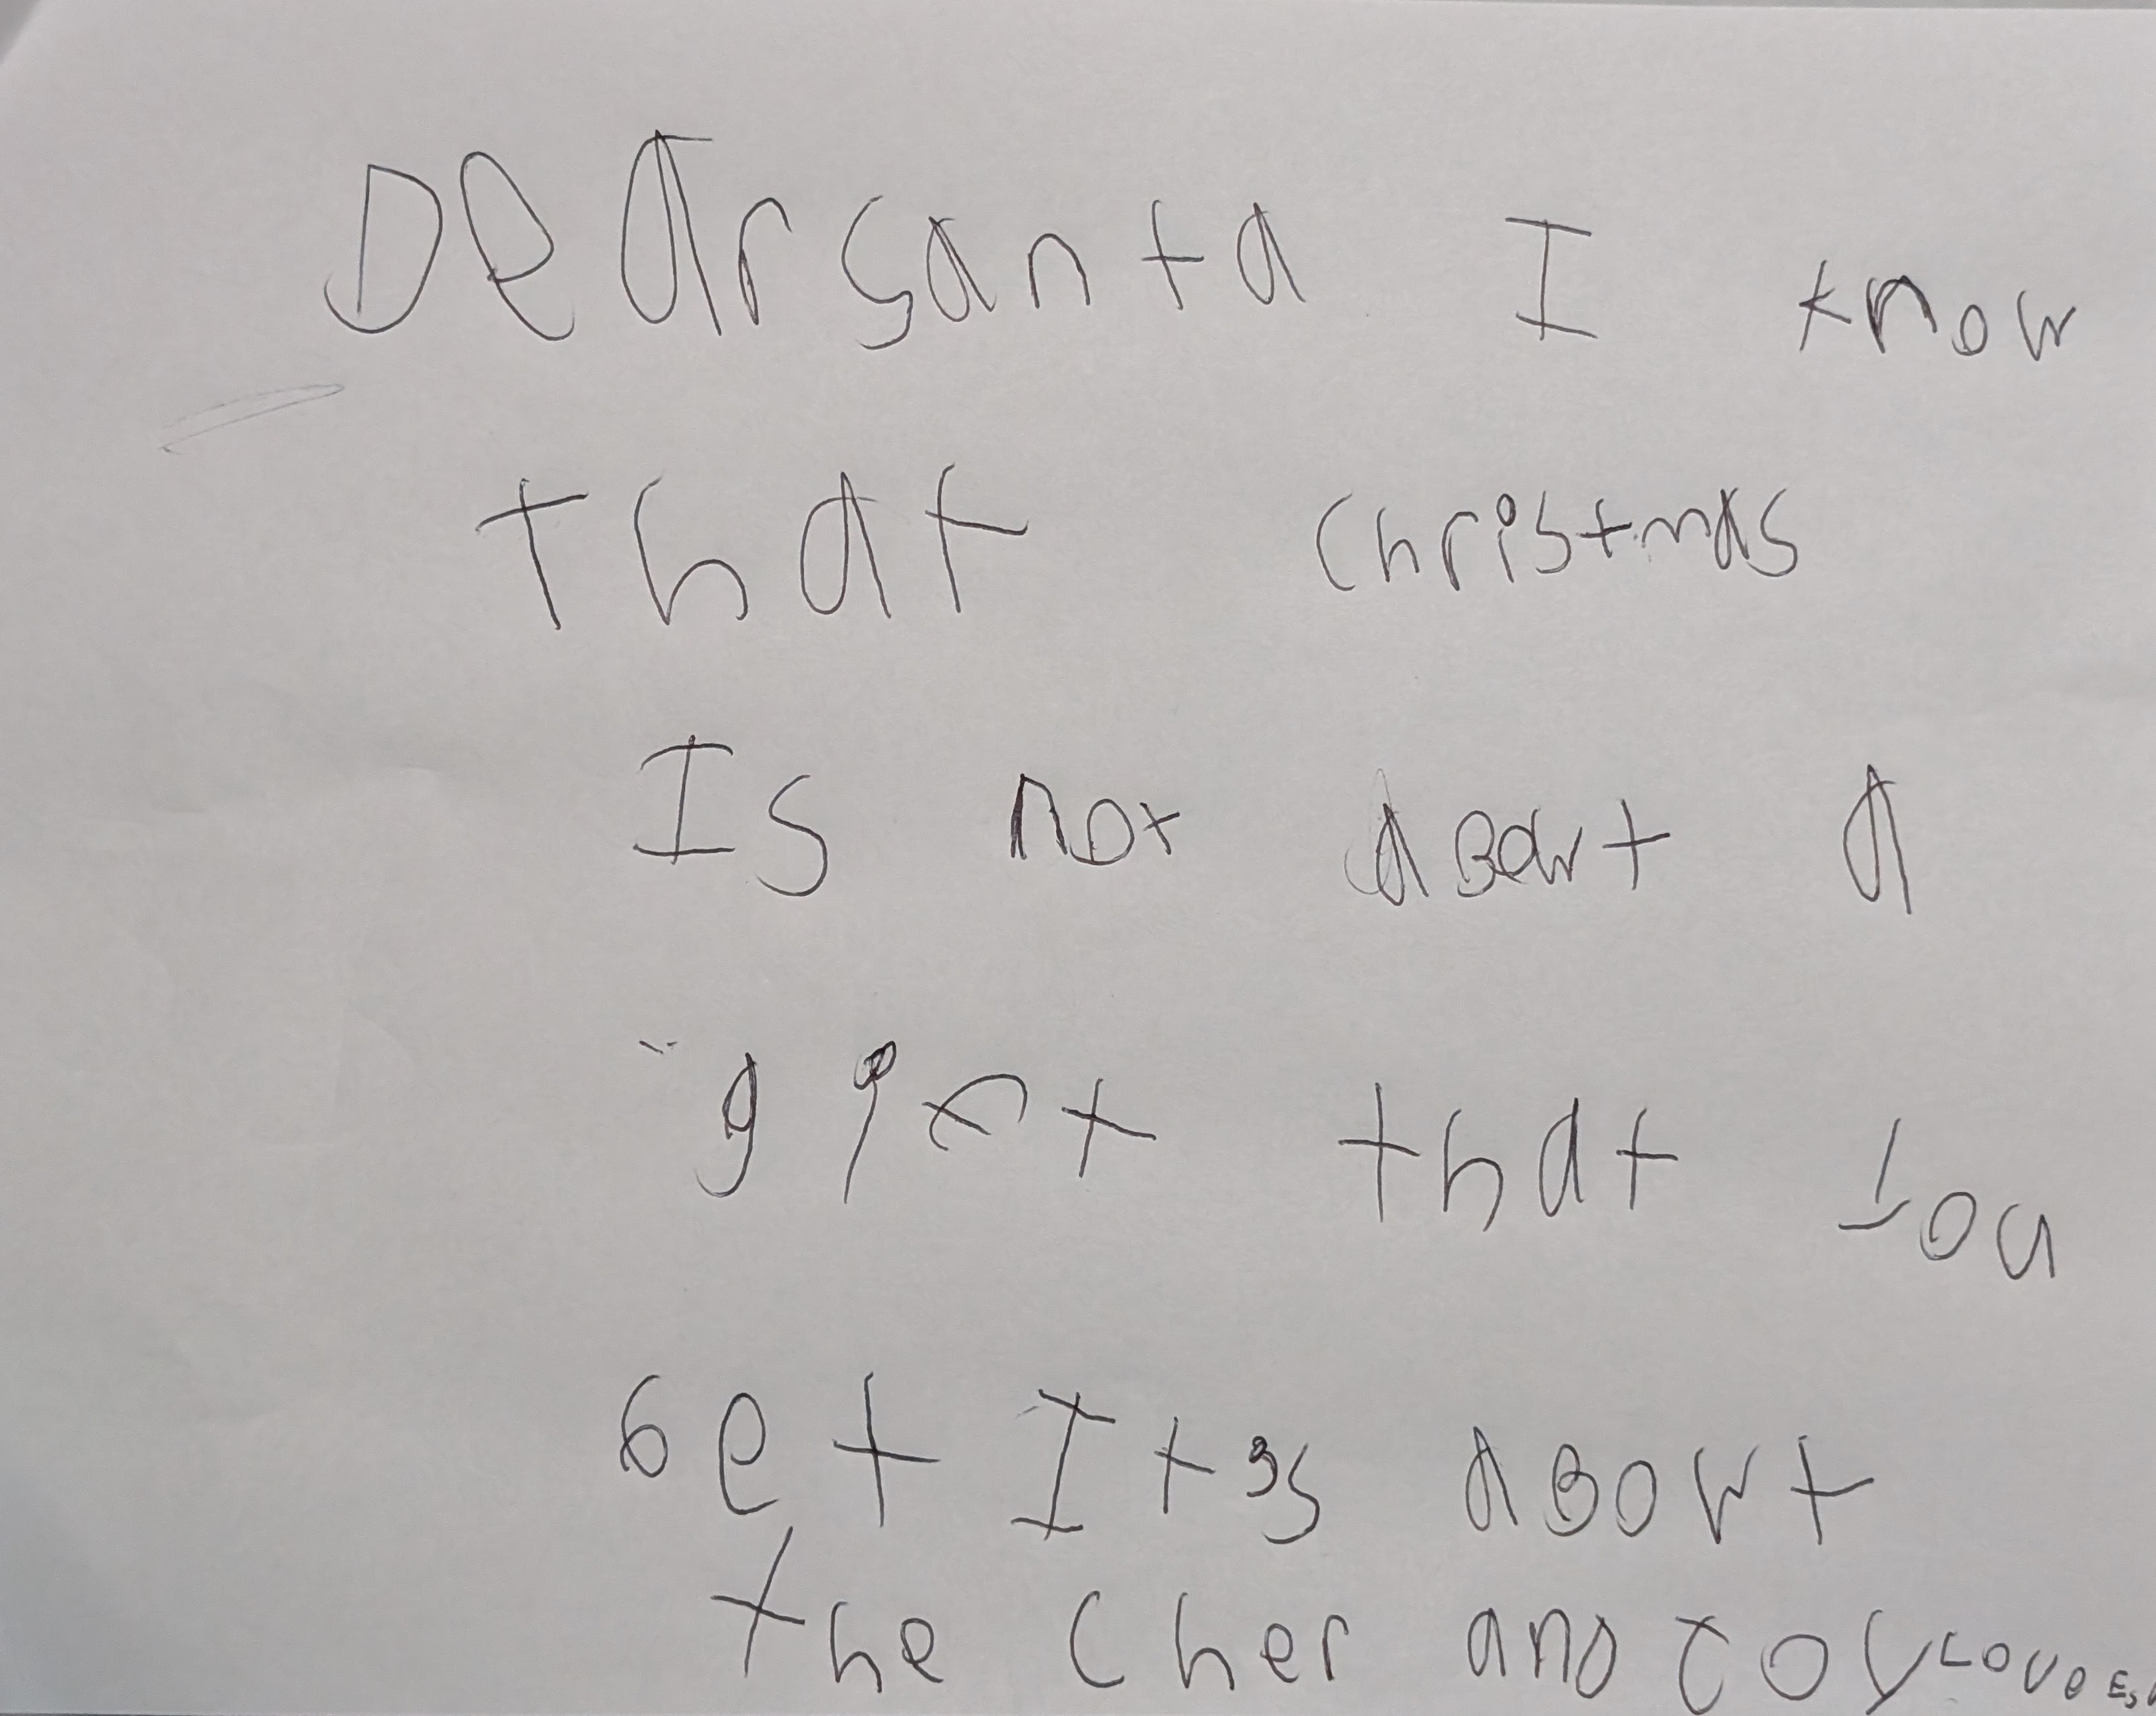 Dear santa I know
that christmas
Is not aBowt a
gift that you
get It's aBowt
the cher and Joy Love